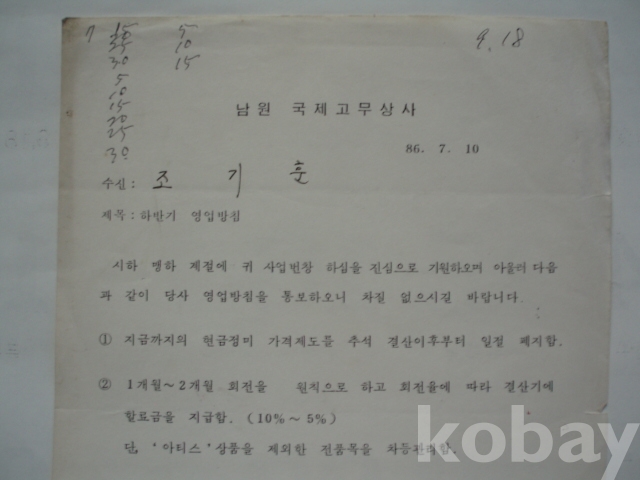 7 15 5 9. 18
25 10
30 15
5
10
15
20
25
30
남원 국제고무상사
86. 7. 10
수신: 조 기 훈
제목: 하반기 영업방침
시하 맹하 제절에 귀 사업번창 하심을 진심으로 기원하오며 아울러 다음
과 같이 당사 영업방침을 통보하오니 차질 없으시길 바랍니다.
① 지금까지의 현금정미 가격제도를 추석 결산이후부터 일절 폐지함.
② 1개월~2개월 회전을 원칙으로 하고 회전율에 따라 결산기에
할료금을 지급함. (10%~5%)
단, '아티스'상품을 제외한 전품목을 차등관리함.
kobay